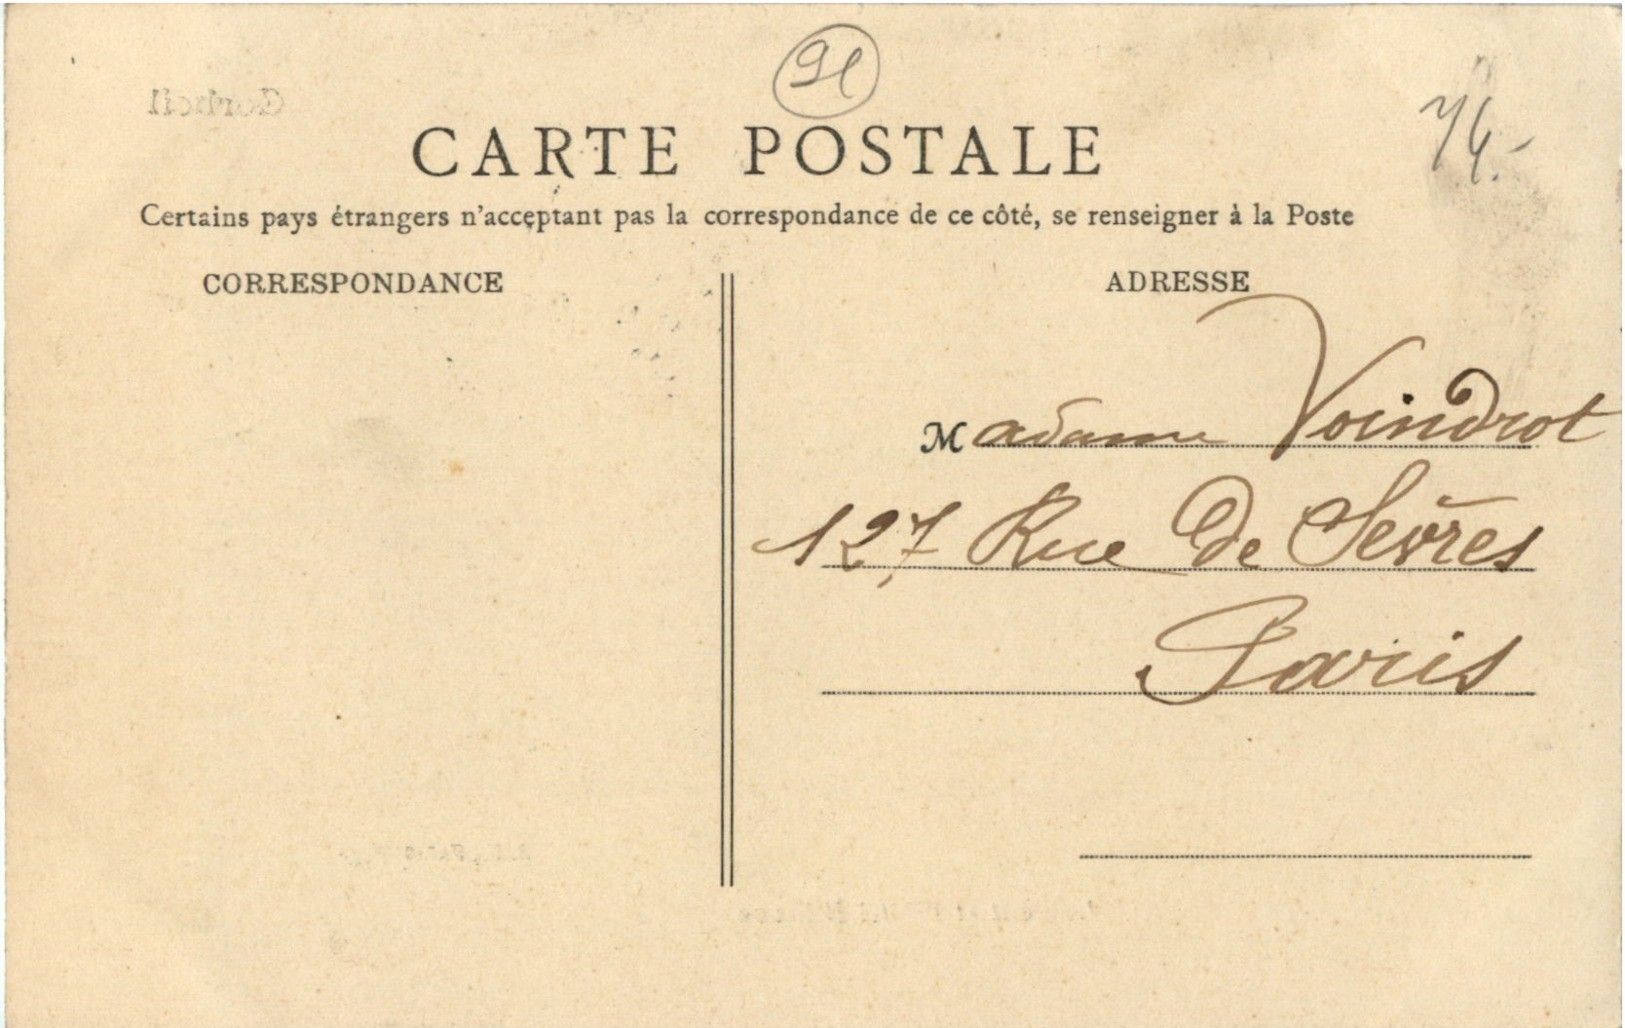 91
74.-
Corbeil
CARTE POSTALE
Certains pays étrangers n'acceptant pas la correspondance de ce côté, se renseigner à la Poste
CORRESPONDANCE
ADRESSE
Madame Voindrot
127 Rue de Sèvres
Paris